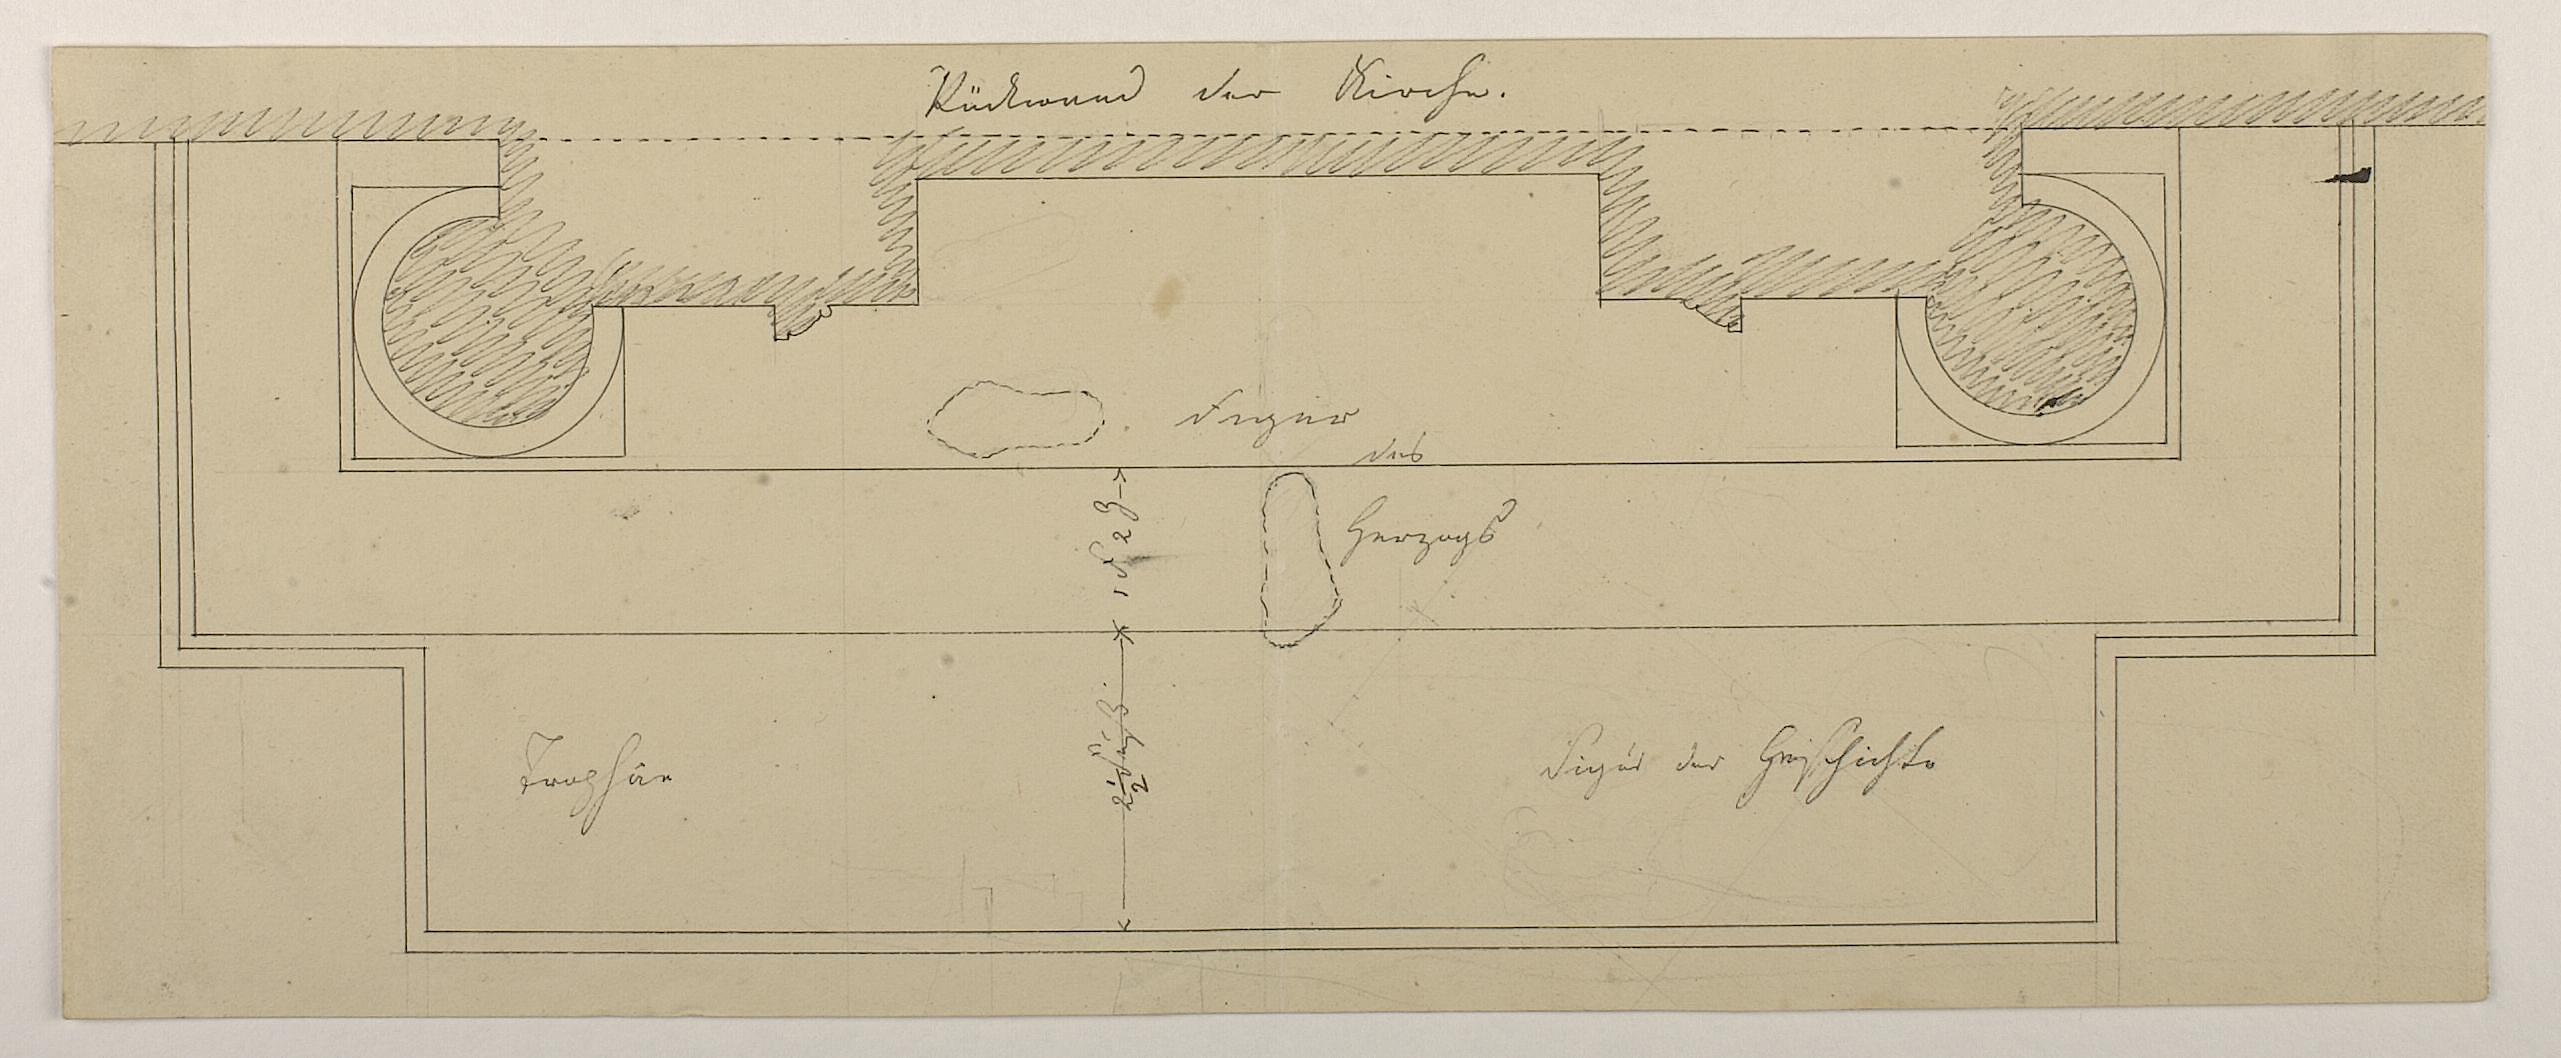 Rückwand der Kirche.
Figur
des
Herzogs
1 F 2 Z
2 1/2 Fuß
Trophäe
Figur der Geschichte